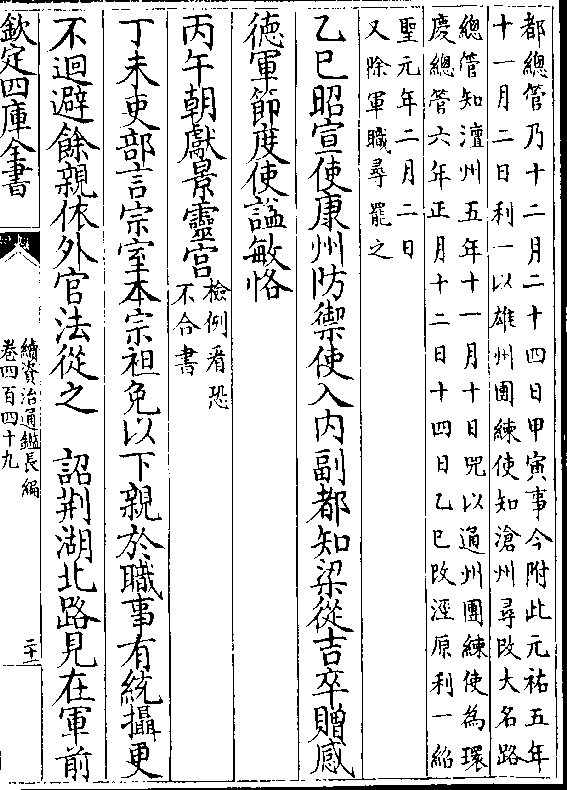 都總管乃十二月二十四日甲寅事今附此元祐五年
十一月二日利一以雄州團練使知滄州尋改大名路
總管知澶州五年十一月十日呪以通州團練使為環
慶總管六年正月十二日十四日乙巳改涇原利一紹
聖元年二月二日
又除軍職尋罷之
乙巳昭宣使康州防禦使入内副都知梁從吉卒贈感
徳軍節度使諡敏恪
丙午朝獻景靈宫檢例看恐
不合書
丁未吏部言宗室本宗袒免以下親於職事有統攝更
不迴避餘親依外官法從之　詔荆湖北路見在軍前
欽定四庫全書
續資治通鑑長編
卷四百四十九
二十一